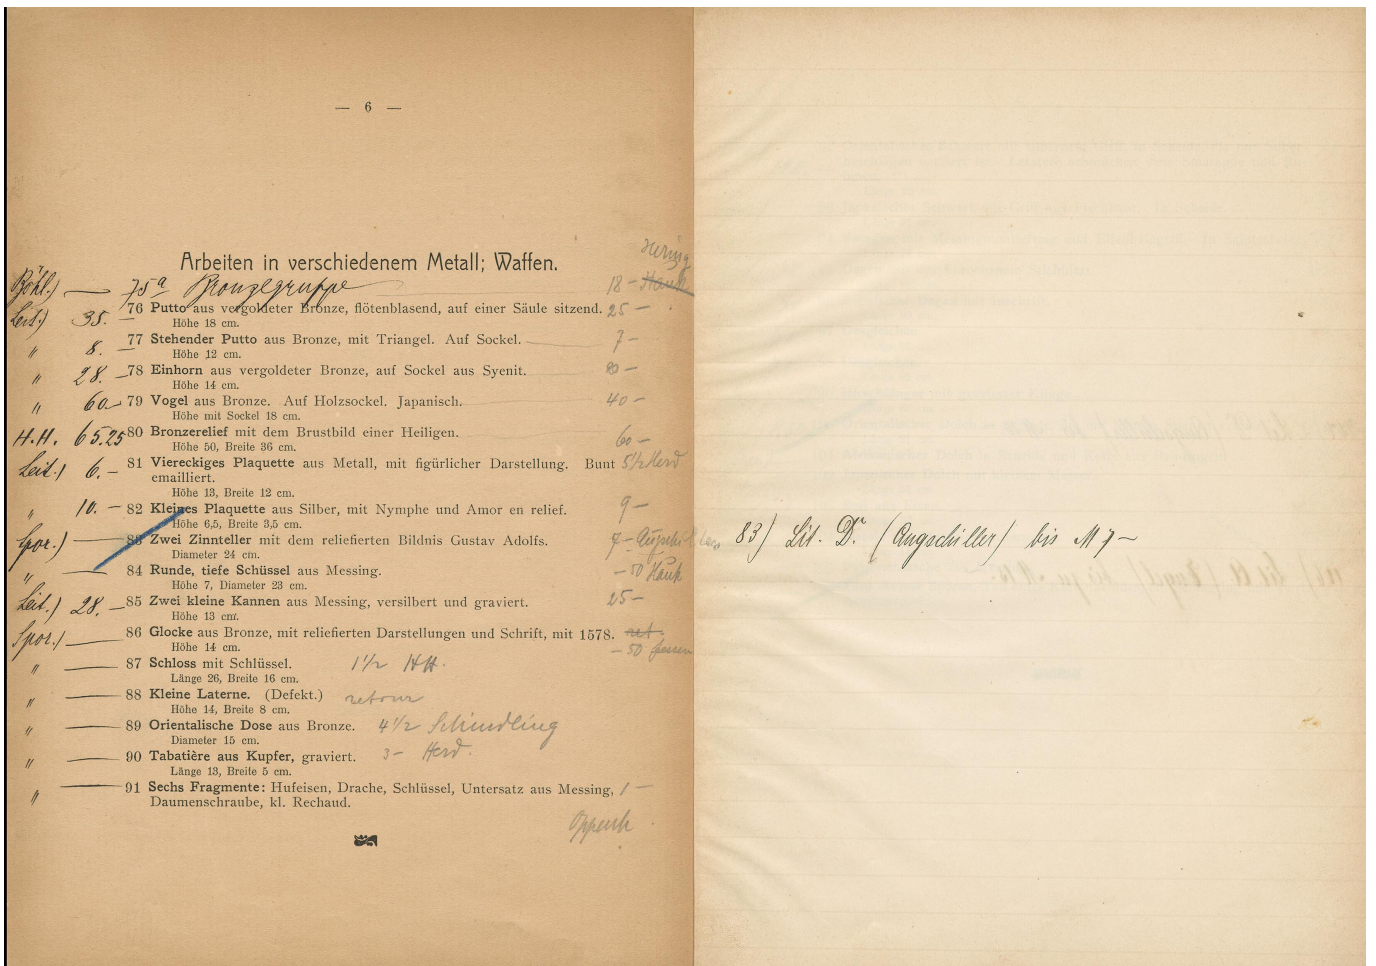 — 6 —
Arbeiten in verschiedenem Metall; Waffen.
Hering
Böhl.) — 75a Bronzegruppe 18 — Hauk
Leit.) 35. — 76 Putto aus vergoldeter Bronze, flötenblasend, auf einer Säule sitzend. 25 —
Höhe 18 cm.
" 8. — 77 Stehender Putto aus Bronze, mit Triangel. Auf Sockel. 7 —
Höhe 12 cm.
" 28. — 78 Einhorn aus vergoldeter Bronze, auf Sockel aus Syenit. 20 —
Höhe 14 cm.
" 60 — 79 Vogel aus Bronze. Auf Holzsockel. Japanisch. 40 —
Höhe mit Sockel 18 cm.
H.H. 65.25 80 Bronzerelief mit dem Brustbild einer Heiligen. 60 —
Höhe 50, Breite 36 cm.
Leit.) 6. — 81 Viereckiges Plaquette aus Metall, mit figürlicher Darstellung. Bunt 5½ Herd
emailliert.
Höhe 13, Breite 12 cm.
" 10. — 82 Kleines Plaquette aus Silber, mit Nymphe und Amor en relief. 9 —
Höhe 6,5, Breite 3,5 cm.
Spor.) — 83 Zwei Zinnteller mit dem reliefierten Bildnis Gustav Adolfs. 7 —
Diameter 24 cm.
" — 84 Runde, tiefe Schüssel aus Messing. — 50 Hauk
Höhe 7, Diameter 23 cm.
Leit.) 28. — 85 Zwei kleine Kannen aus Messing, versilbert und graviert. 25 —
Höhe 13 cm.
Spor.) — 86 Glocke aus Bronze, mit reliefierten Darstellungen und Schrift, mit 1578. ret.
Höhe 14 cm. — 50
" — 87 Schloss mit Schlüssel. 1½ HH.
Länge 26, Breite 16 cm.
" — 88 Kleine Laterne. (Defekt.) retour
Höhe 14, Breite 8 cm.
" — 89 Orientalische Dose aus Bronze. 4½ Schindling
Diameter 15 cm.
" — 90 Tabatière aus Kupfer, graviert. 3 — Herd.
Länge 13, Breite 5 cm.
" — 91 Sechs Fragmente: Hufeisen, Drache, Schlüssel, Untersatz aus Messing, 1 —
Daumenschraube, kl. Rechaud.
Oppenh
83) Lit. Dr. (Augschiller) bis M 7 —